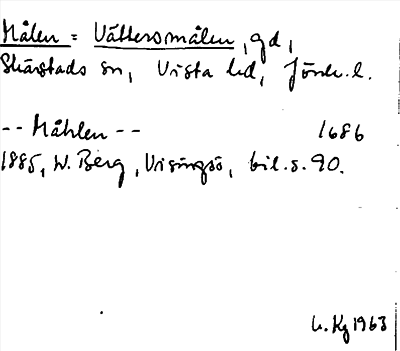 Målen = Vättersmålen, gd,
Skärstads sn, Vista hd, Jönk. l.
-- Måhlen -- 1686
1885, W. Berg, Visingsö, bil. s. 90.
Kg 1963